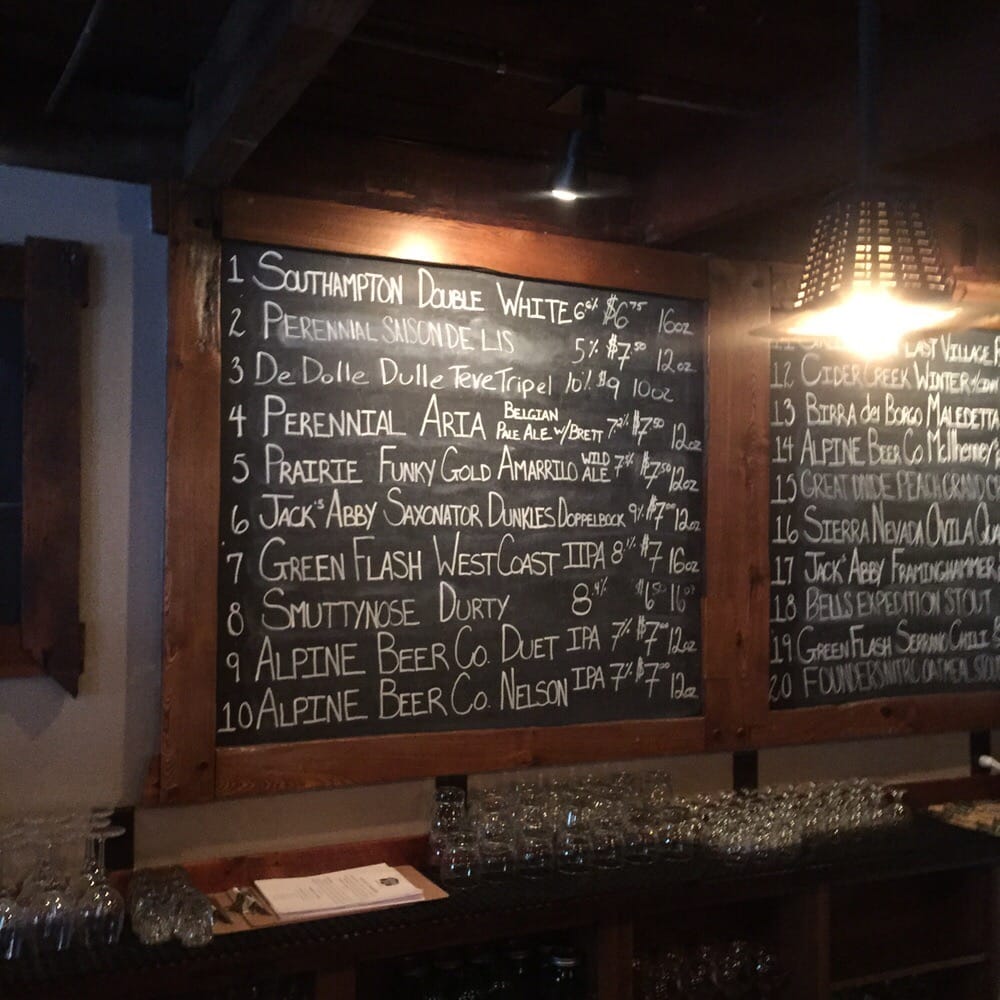 1 SOUTHAMPTON DOUBLE WHITE 6.6% $6.75 16oz
2 PERENNIAL SAISON DE LIS 5% $7.50 12oz
3 De Dolle Dulle Teve Tripel 10% $9 10oz
4 PERENNIAL ARIA BELGIAN PALE ALE W/BRETT 7.2% $7.50 12oz
5 PRAIRIE FUNKY GOLD AMARRILO WILD ALE $7.50 12oz
6 JACK'S ABBY SAXONATOR DUNKLES DOPPELBOCK 9% $7.00 12oz
7 GREEN FLASH WEST COAST IIPA 8.1% $7 16oz
8 SMUTTYNOSE DURTY 8.4% $6.50 16oz
9 ALPINE BEER CO. DUET IPA 7% $7.00 12oz
10 ALPINE BEER CO. NELSON IPA 7% $7.00 12oz
LAST VILLAGE
12 CIDER CREEK WINTER
13 BIRRA del BORGO MALEDETTA
14 ALPINE BEER CO McIlhenney's
15 GREAT DIVIDE PEACH GRAND
16 SIERRA NEVADA OVILA QUA
17 JACK'S ABBY FRAMINGHAMMER
18 BELLS EXPEDITION STOUT
19 GREEN FLASH SERRANO CHILI
20 FOUNDERS NITRO OATMEAL STOU